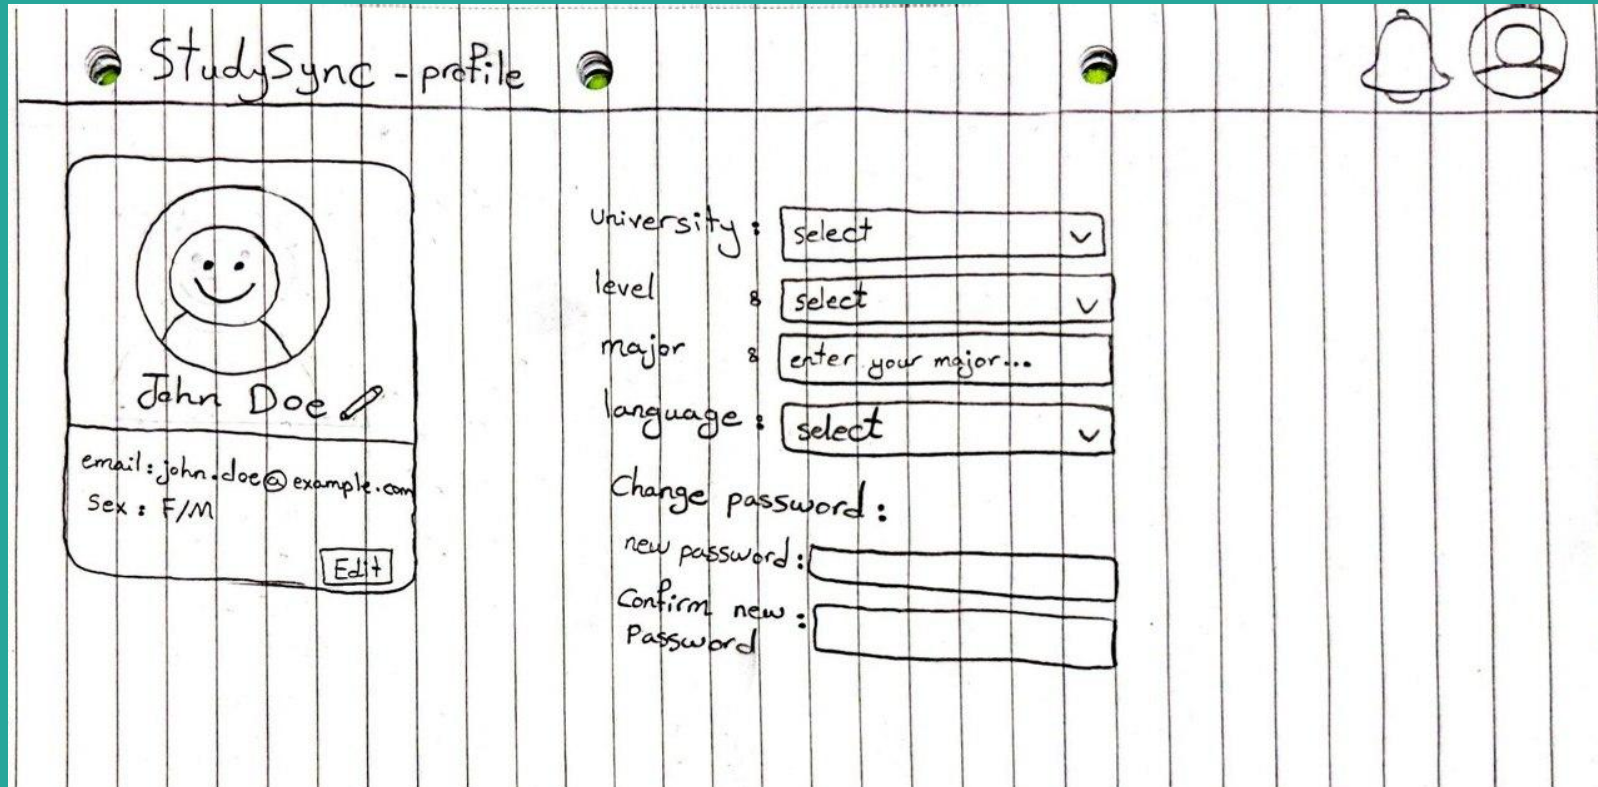 StudySync - profile
John Doe
email: john.doe@example.com
Sex: F/M
Edit
University: select
level : select
major : enter your major...
language: select
Change password:
new password:
Confirm new :
Password